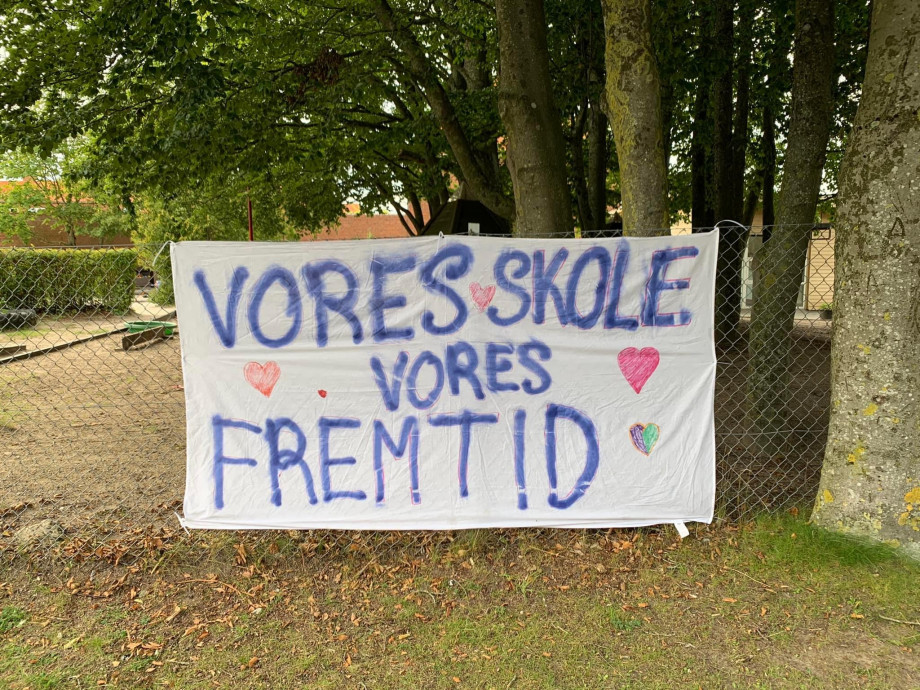 VORES SKOLE
VORES
FREMTID